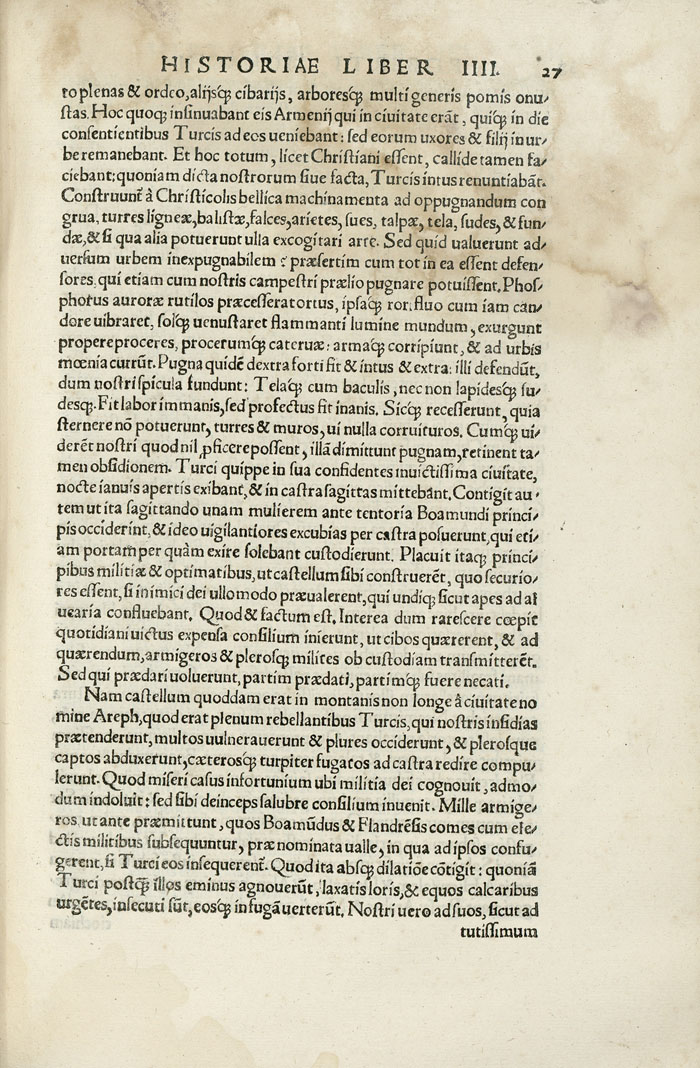 HISTORIAE LIBER IIII. 27
to plenas & ordeo, alijsq; cibarijs, arboresq; multi generis pomis onu/
stas. Hoc quoq; insinuabant eis Armenij qui in ciuitate erãt, quiq; in die
consentientibus Turcis ad eos ueniebant: sed eorum uxores & filij in ur/
be remanebant. Et hoc totum, licet Christiani essent, callide tamen fa/
ciebant: quoniam dicta nostrorum siue facta, Turcis intus renuntiabãt.
Construunt̃ à Christicolis bellica machinamenta ad oppugnandum con
grua, turres ligneæ, balistæ, falces, arietes, sues, talpæ, tela, sudes, & fun/
dæ, & si qua alia potuerunt ulla excogitari arte. Sed quid ualuerunt ad/
uersum urbem inexpugnabilem ? præsertim cum tot in ea essent defen/
sores, qui etiam cum nostris campestri prælio pugnare potuissent. Phos/
phorus auroræ rutilos præcesserat ortus, ipsaq; rorifluo cum iam can/
dore uibraret, solq; uenustaret flammanti lumine mundum, exurgunt
propere proceres, procerumq; cateruæ: armaq; corripiunt, & ad urbis
mœnia currũt. Pugna quidẽ dextra forti fit & intus & extra: illi defendũt,
dum nostri spicula fundunt: Telaq; cum baculis, nec non lapidesq; su/
desq;. Fit labor immanis, sed profectus fit inanis. Sicq; recesserunt, quia
sternere nõ potuerunt, turres & muros, ui nulla corruituros. Cumq; ui/
derẽt nostri quod nil ꝓficere possent, illã dimittunt pugnam, retinent ta/
men obsidionem. Turci quippe in sua confidentes inuictissima ciuitate,
nocte ianuis apertis exibant, & in castra sagittas mittebãnt. Contigit au/
tem ut ita sagittando unam mulierem ante tentoria Boamundi princi/
pis occiderint, & ideo uigilantiores excubias per castra posuerunt, qui eti/
am portam per quàm exire solebant custodierunt. Placuit itaq; princi/
pibus militiæ & optimatibus, ut castellum sibi construerẽt, quo securio/
res essent, si inimici dei ullo modo præualerent, qui undiq; sicut apes ad al
uearia confluebant. Quod & factum est. Interea dum rarescere cœpit
quotidiani uictus expensa consilium inierunt, ut cibos quærerent, & ad
quærendum, armigeros & plerosq; milites ob custodiam transmitterẽt.
Sed qui prædari uoluerunt, partim prædati, partimq; fuere necati.
Nam castellum quoddam erat in montanis non longe à ciuitate no
mine Areph, quod erat plenum rebellantibus Turcis, qui nostris insidias
prætenderunt, multos uulnerauerunt & plures occiderunt, & plerosque
captos abduxerunt, cæterosq; turpiter fugatos ad castra redire compu/
lerunt. Quod miseri casus infortunium ubi militia dei cognouit, admo/
dum indoluit: sed sibi deinceps salubre consilium inuenit. Mille armige/
ros ut ante præmittunt, quos Boamũdus & Flandrẽsis comes cum ele/
ctis militibus subsequuntur, præ nominata ualle, in qua ad ipsos confu/
gerent, si Turci eos insequerent̃. Quod ita absq; dilatiõe cõtigit: quoniã
Turci postq̃ illos eminus agnouerũt, laxatis loris, & equos calcaribus
urgẽtes, insecuti sũt, eosq; in fugã uerterũt. Nostri uero ad suos, sicut ad
tutissimum